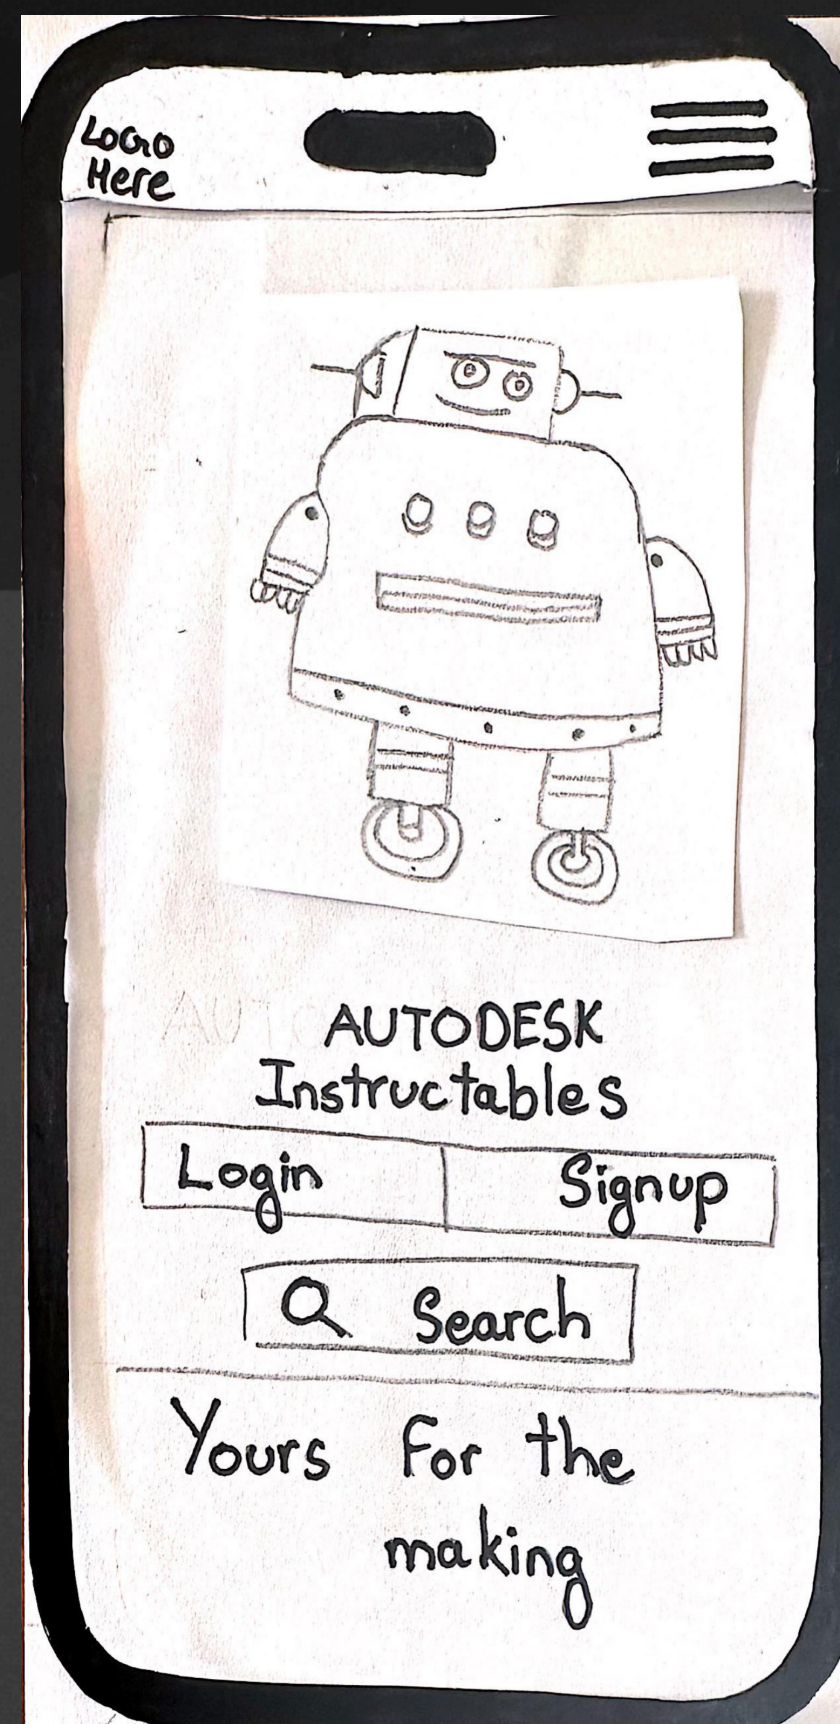 LOGO
Here
AUTO
AUTODESK
Instructables
Login Signup
Search
Yours for the
making